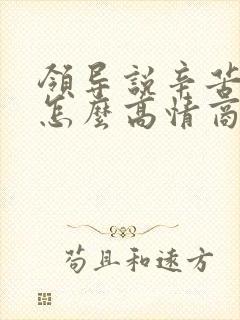 領导說辛苦
怎麼高情商
苟且和遠方